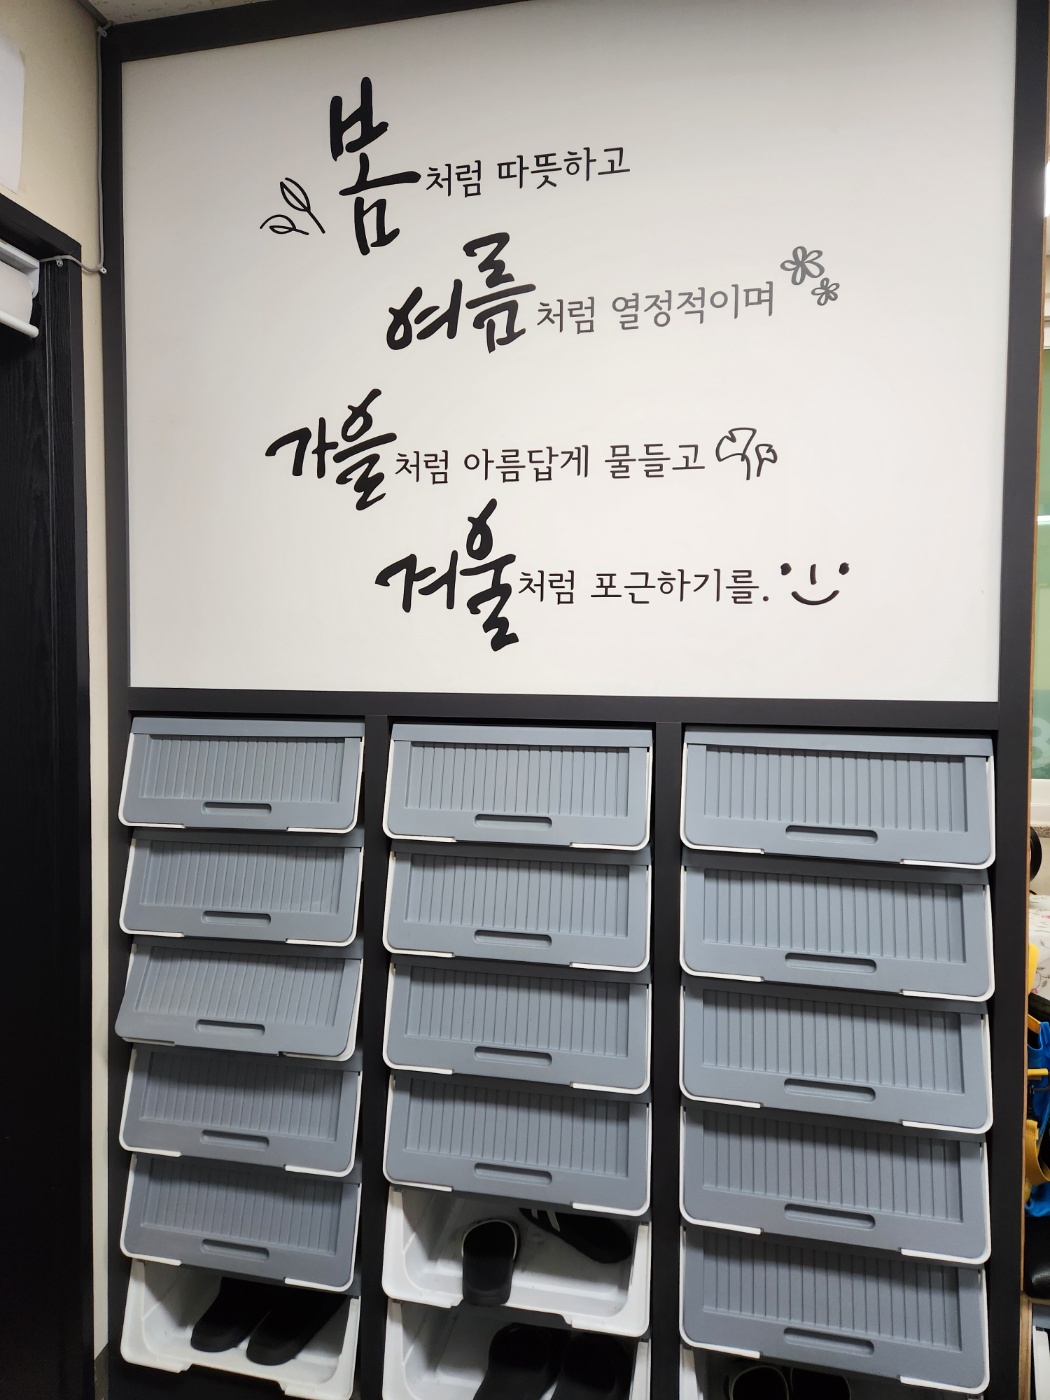 봄처럼 따뜻하고
여름처럼 열정적이며
가을처럼 아름답게 물들고
겨울처럼 포근하기를.